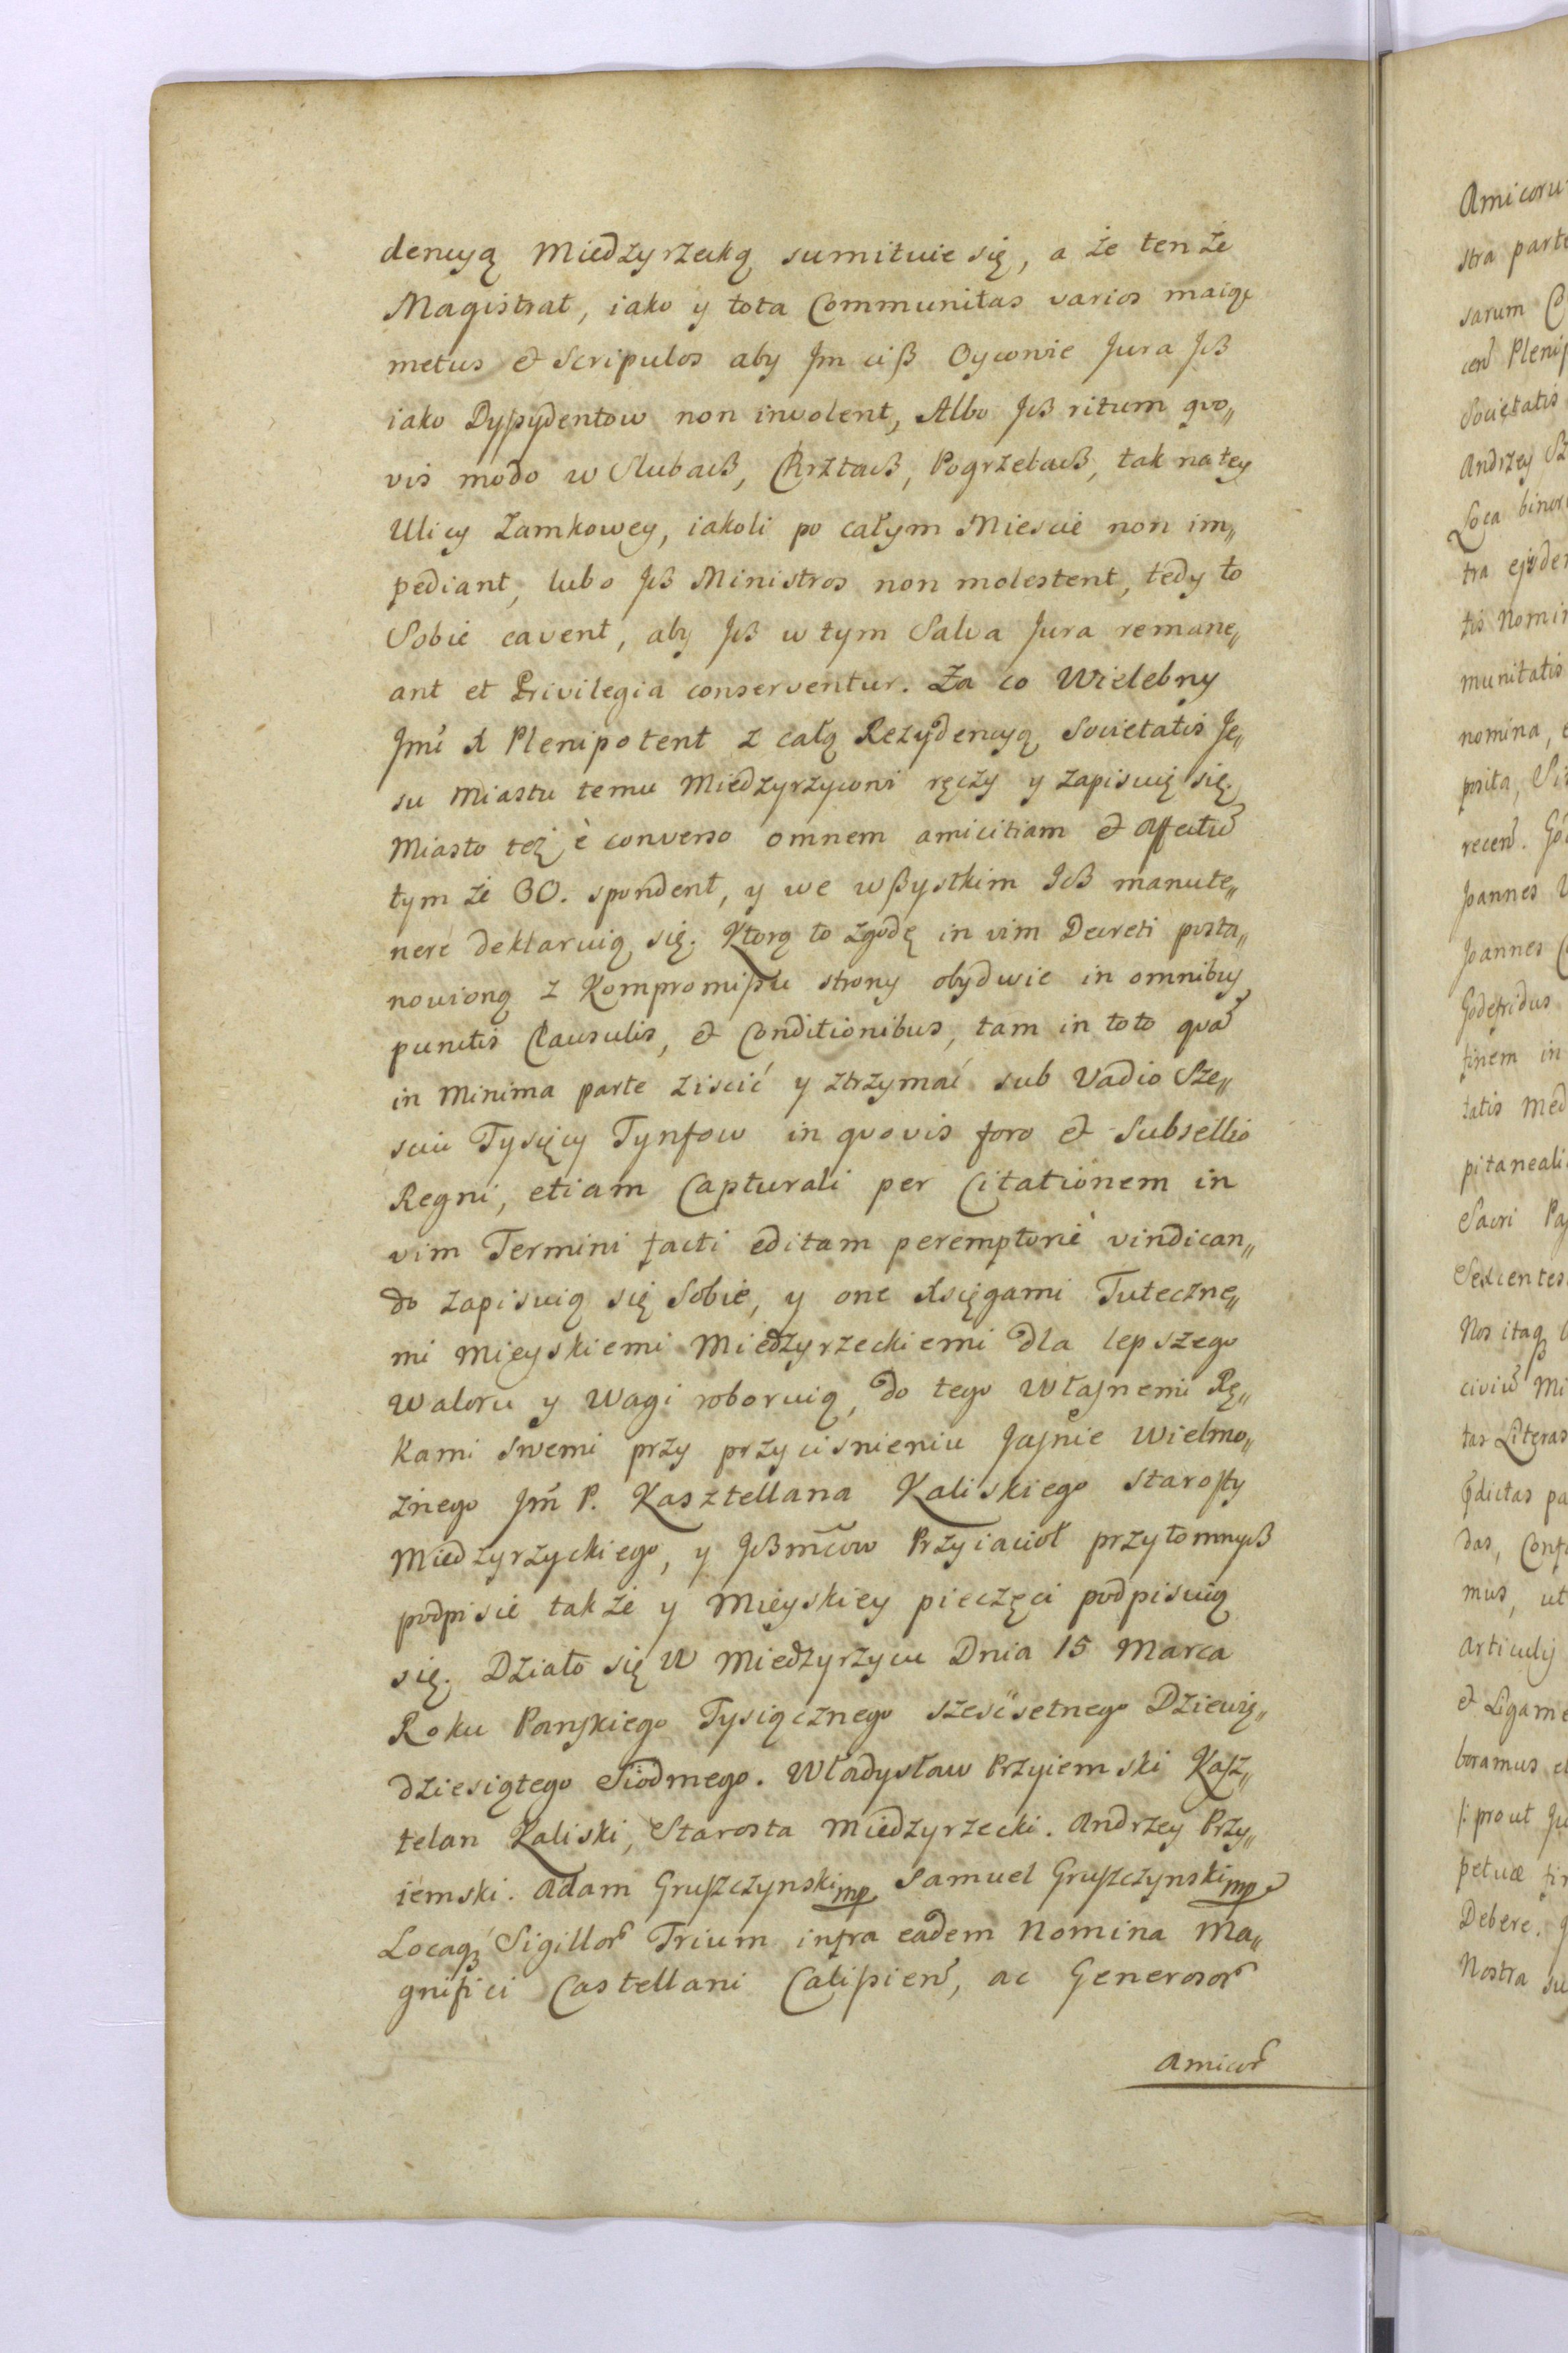 dencyą Miedzyrzecką sumituie się, a że tenże
Magistrat, iako y tota Communitas varios maiąc
metus et Scripulos aby Jm cich Oycowie Jura Jch
iako Dyssydentow non involent, Albo Jch ritum quo„
vis modo w Slubach, Chrztach, Pogrzebach, tak na tey
Ulicy Zamkowey, iakoli po całym Miescie non im„
pediant, lubo Jch Ministros non molestent, tedy to
Sobie cavent, aby Jch w tym Salva Jura remane„
ant et Privilegia conserventur. Za co Wielebny
Jmć X Plenipotent z całą Rezydencyą Societatis Je„
su Miastu temu Miedzyrzycowi ręczy y zapisuię się.
Miasto też è converso omnem amicitiam et Affectū
tym że OO. spondent, y we wszystkim Jch manute„
nere deklaruią się. Ktorą to zgodę in vim Decreti posta„
nowioną z Kompromissu strony obydwie in omnibus
punctis Clausulis, et Conditionibus, tam in toto quā
in Minima parte ziscić y ztrzymać sub Vadio Sze„
sciu Tysięcy Tynfow in quovis foro et Subsellio
Regni, etiam Capturali per Citationem in
vim Termini facti editam peremptoriè vindican„
do zapisuią się Sobie, y one Xsięgami Tuteczne„
mi Mieyskiemi Miedzyrzeckiemi dla lepszego
Waloru y Wagi roboruią, do tego Własnemi Rę„
kami swemi przy przycisnieniu Jasnie Wielmo„
żnego Jmć P. Kasztellana Kaliskiego Starosty
Miedzyrzyckiego, y Jchmćiow Przyiacioł przytomnych
podpisie także y Mieyskiey pieczęci podpisuią
się. Działo się W Miedzyrzycu Dnia 15 Marca
Roku Panskiego Tysiącznego sześćsetnego Dziewię„
dziesiątego Siodmego. Władysław Przyiemski Kasz„
telan Kaliski, Starosta Miedzyrzecki. Andrzey Przy„
iemski. Adam Gruszczynski mp Samuel Gruszczynski mp
Locaq; Sigillor Trium infra eadem Nomina Ma„
gnifici Castellani Calissien, ac Generosor
Amicor